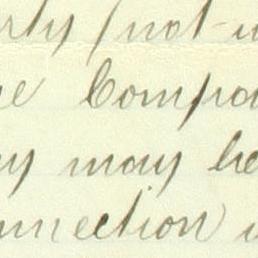 rty (not-w
e Compa
y may be
nnection